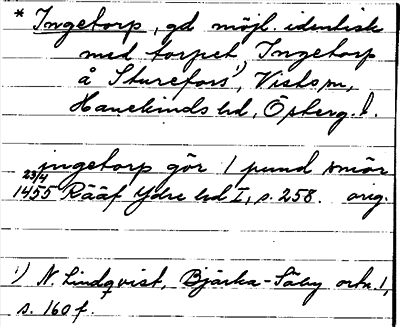 * Ingetorp, gd möjl. identisk
med torpet Ingetorp
å Sturefors¹, Vists sn,
Hanekinds hd, Österg. l.
ingetorp gör 1 pund smör
23/4
1455 Rääf Ydre hd I, s. 258. orig.
¹) N. Lindqvist, Bjärka-Säby ortn. 1,
s. 160 f.